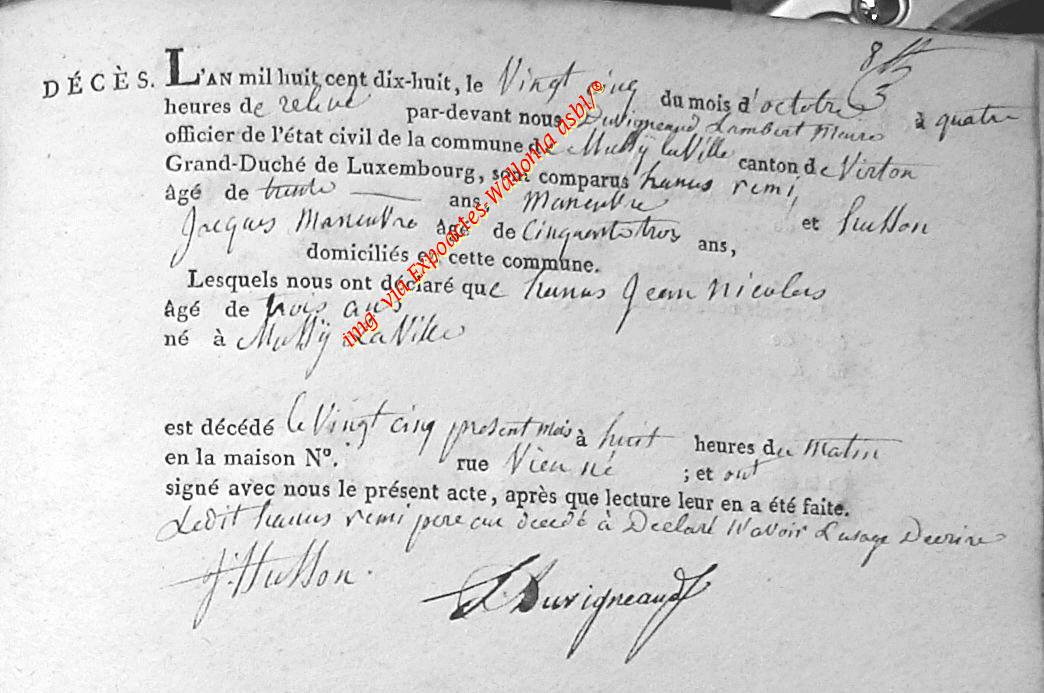 8bre
DÉCÈS. L'AN mil huit cent dix-huit, le Vingt cinq du mois d'octobre à quatre
heures de relevé par-devant nous Duvigneaud Lambert Maire
officier de l'état civil de la commune de Mussÿ laVille canton de Virton
Grand-Duché de Luxembourg, sont comparus hanus remi,
âgé de trente ans, Maneuvre et husson
Jacques Maneuvre âgé de Cinquantetrois ans,
domiciliés en cette commune.
Lesquels nous ont déclaré que hanus Jean nicolas
âgé de trois ans
né à Mussÿ LaVille
est décédé le Vingt cinq present mois à huit heures du Matin
en la maison N°. rue Vieu né ; et ont
signé avec nous le présent acte, après que lecture leur en a été faite.
Ledit hanus remi pere au decedé à Declaré N'avoir L'usage Decrire
J. Husson.
L Duvigneaud
img via EXpoactes-Wallonia asbl/®